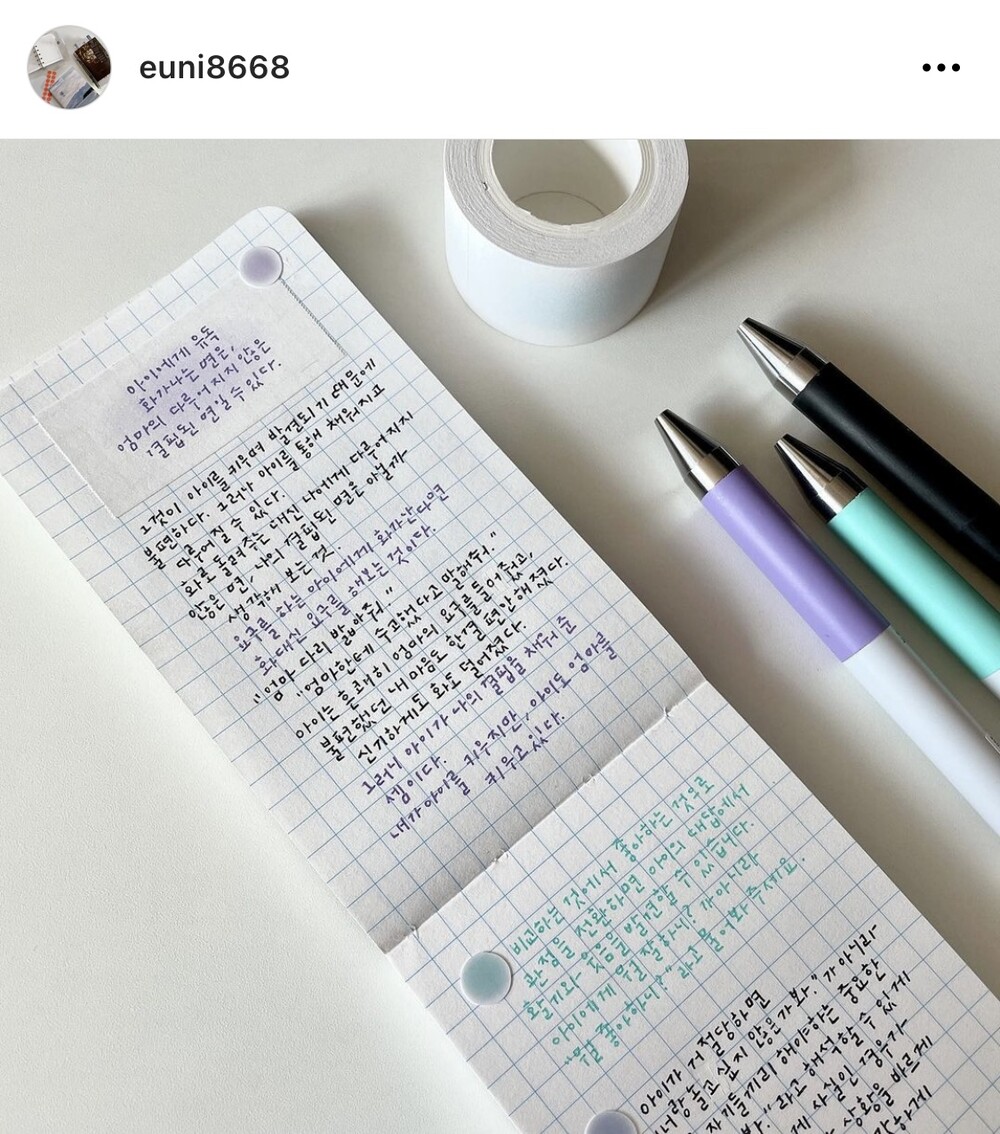 euni8668
아이에게 유독
화가나는 면은,
엄마의 다루어지지 않은
결핍된 면일 수 있다.
그것이 아이를 키우며 발견되기 때문에
불편하다. 그러나 아이를 통해 채워지고
다루어질 수 있다.
화로 돌려주는 대신 나에게 다루어지지
않은 면, 나의 결핍된 면은 아닐까
생각해 보는 것.
요구를 하는 아이에게 화가난다면
화대신 요구를 해보는 것이다.
"엄마 다리 밟아줘."
"엄마한테 수고했다고 말해줘."
아이는 흔쾌히 엄마의 요구를 들어줬고,
불편했던 내 마음도 한결 편안해졌다.
신기하게도 화도 덜어졌다.
그러니 아이가 나의 결핍을 채워 준
셈이다.
내가 아이를 키우지만, 아이도 엄마를
키우고 있다.
비교하는 것에서 좋아하는 것으로
관점을 전환하면 아이의 대답에서
활기와 웃음을 발견할 수 있습니다.
아이에게 "뭘 잘하니?"가 아니라
"뭘 좋아하니?"라고 물어봐 주세요.
아이가 거절당하면
"너랑 놀고 싶지 않은가봐."가 아니라
자기들끼리 해야하는 중요한
라고 해석할 수 있게
제 사실인 경우가
상황을 바르게